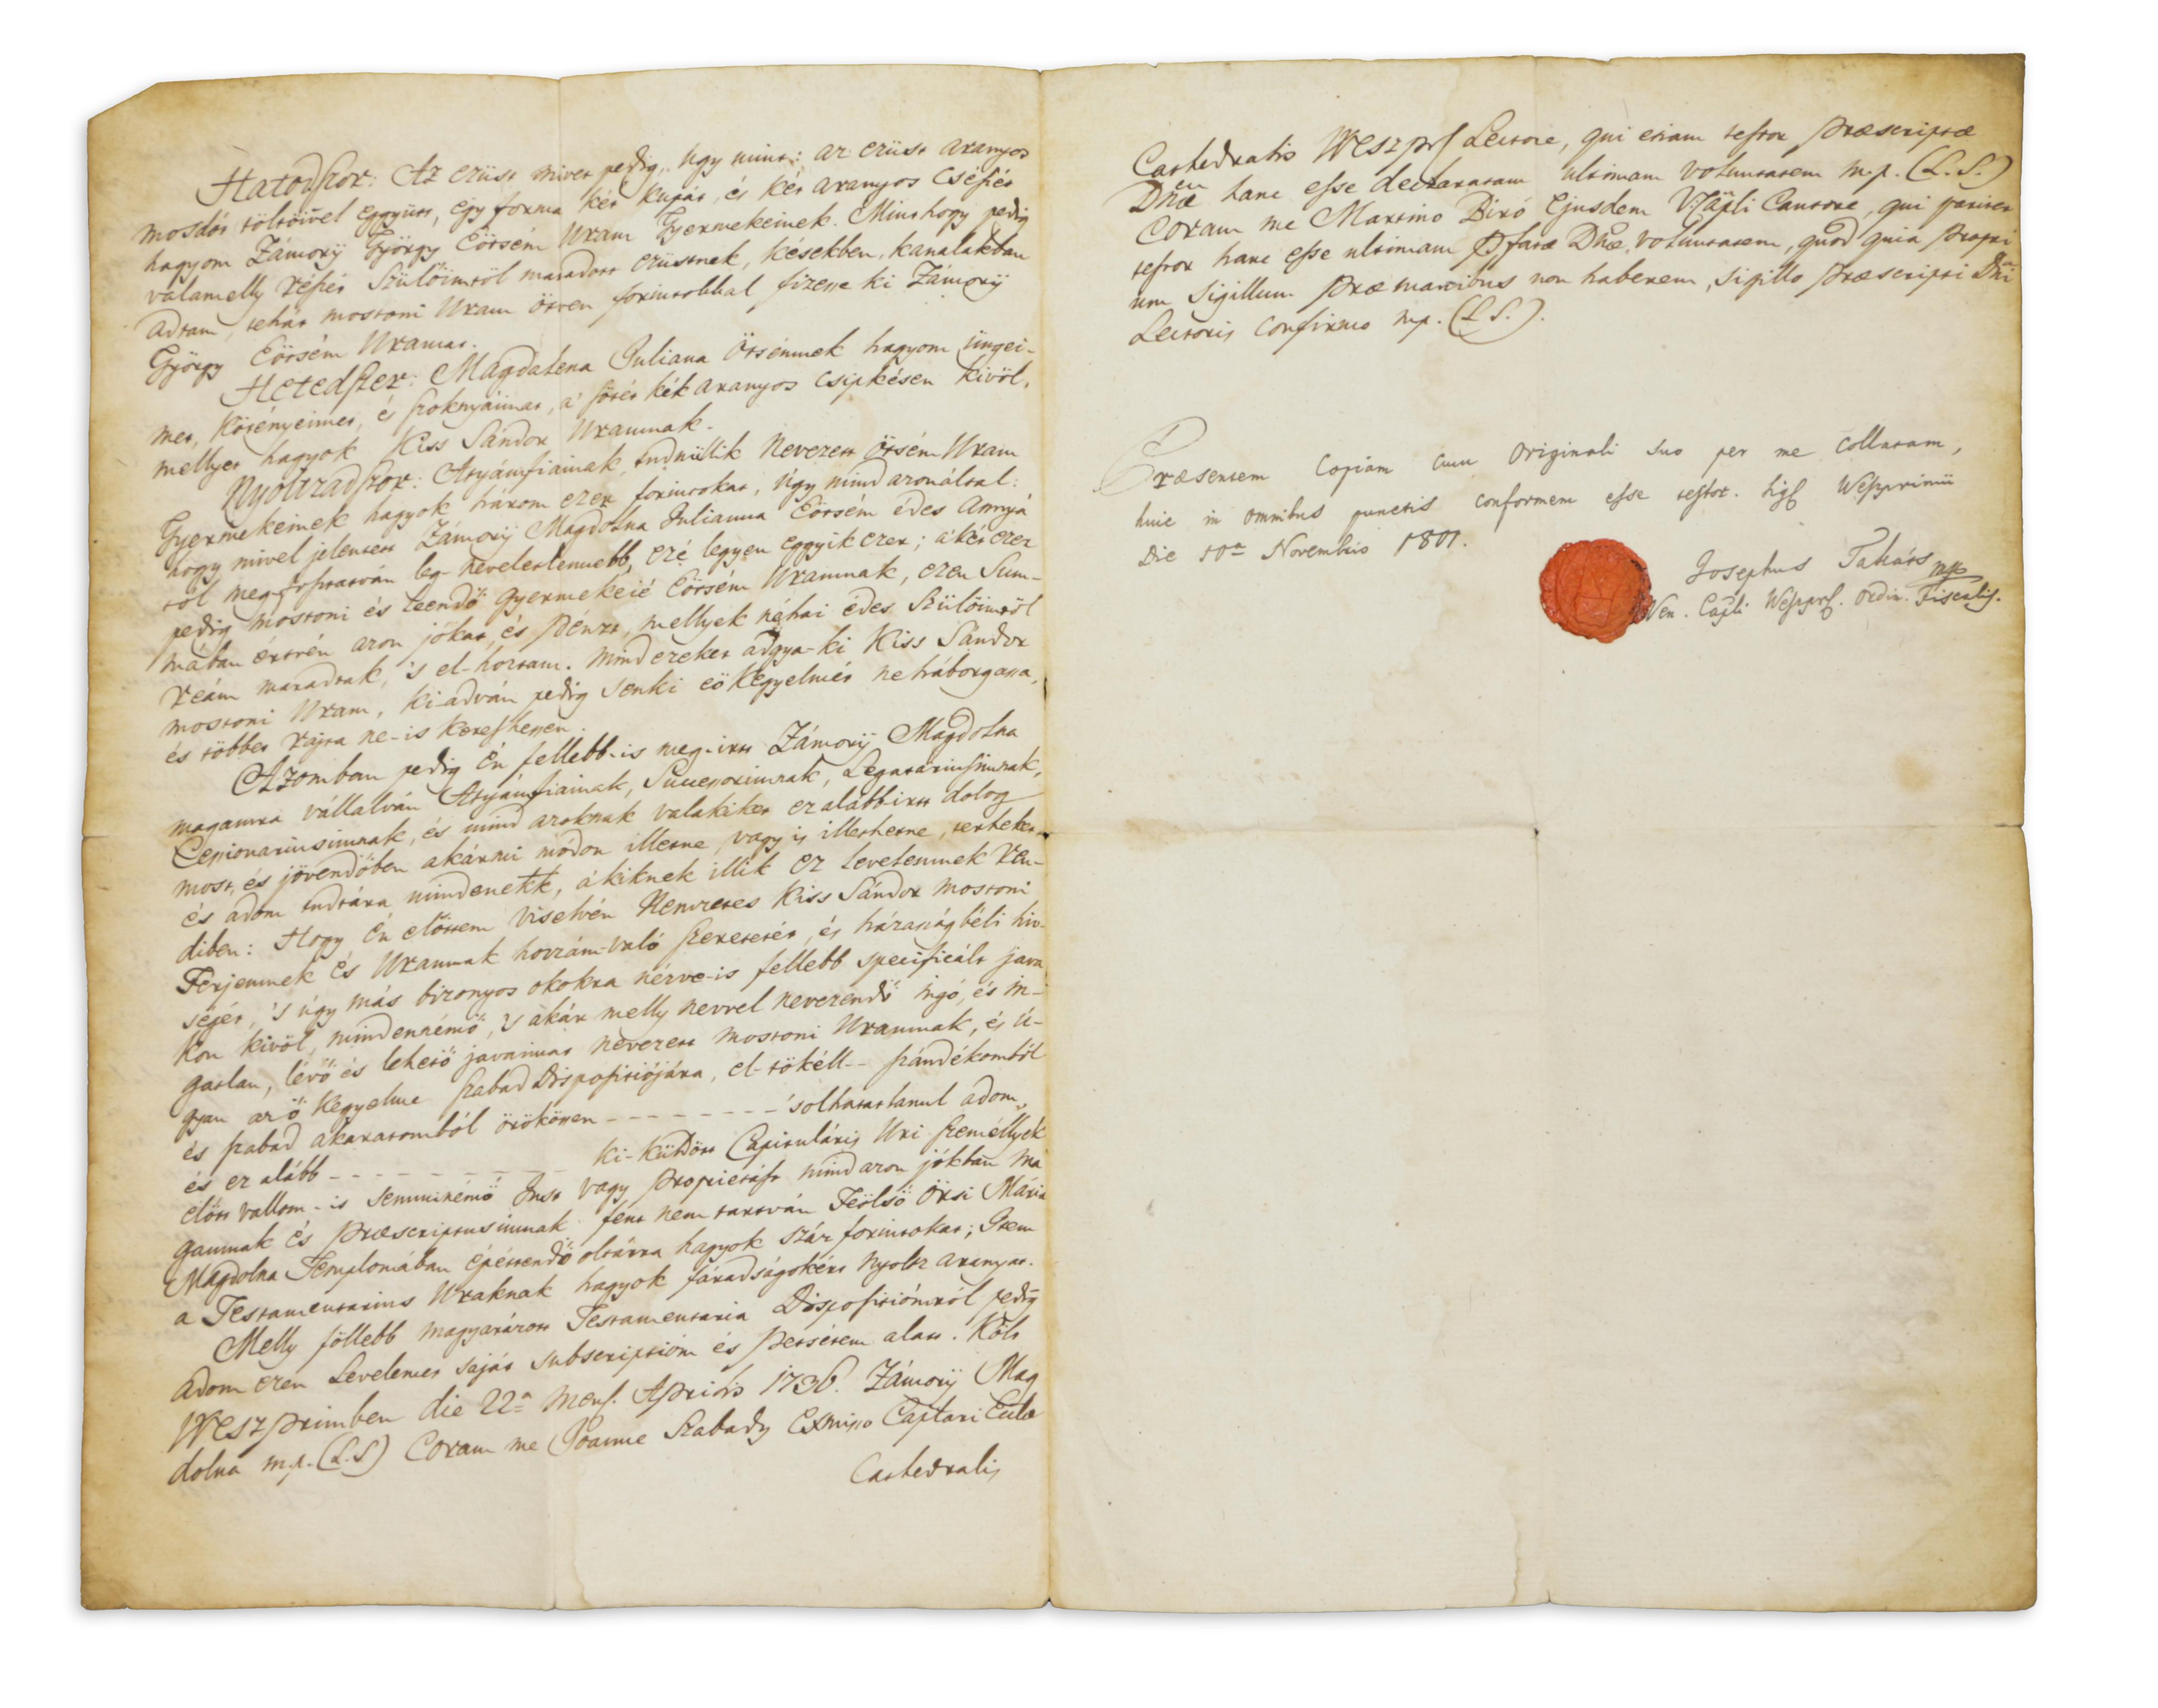 Hatodszor: Az ezüst mivet pedig, úgy mint: az ezüst aranyos
mosdót töltőivel eggyütt, egy forma két kupát, és két aranyos Csészét
hagyom Zámorÿ György Eötsém Uram Gyermekeinek. Minthogy pedig
valamelly részét Szülőimtől maradott ezüstnek, késekben, kanalakban
adtam, tehát mostoni Uram ötven forintokkal fizesse ki Zámorÿ
György Eötsém Uramat.
Hetedszer: Magdalena Juliana Ötsémnek hagyom üngei-
met, Kötényeimet, és szoknyáimat, a' sötét kék aranyos csipkésen kivöl,
mellyet hagyok Kiss Sándor Uramnak.
Nyoltzadszor: Atyámfiainak, tudniillik Nevezett Ötsém Uram
Gyermekeinek hagyok három ezer forintokat, Úgy mind azonáltal:
hogy mivel jelentett Zámorÿ Magdolna Julianna Eötsém édes Annyá
tól megfosztatván leg-neveletlenebb, ezé legyen eggyik ezer; a' két ezer
pedig mostoni és leendő gyermekeié Eötsém Uramnak, ezen Sum-
mában értvén azon jókat, és pénzt, mellyek néhai édes Szülőimtől
reám maradtak, 's el-hoztam. Mind ezeket adgya-ki Kiss Sándor
mostoni Uram, ki-adván pedig senki eö Kegyelmét ne háborgassa,
és többet rajta ne-is kereshessen.
Azomban pedig Én fellebb-is meg-irtt Zámorÿ Magdolna
magamra vállalván Atyámfiainak, Successorimnak, Legatariusimnak,
Cessionariusimnak, és mind azoknak valakiket ez alább irtt dolog
most, és jövendőben akármi módon illetne, vagy is illethetne, terheket
és adom tudtára mindenekk, a' kiknek illik ez levelemnek ren-
diben: Hogy Én előttem viselvén Nemzetes Kiss Sándor mostoni
Férjemnek és Uramnak hozzám-való szeretetét, és házasságbéli hiv-
ségét, 's úgy más bizonyos okokra nézve-is fellebb specificált java
kon kivöl, mindennémő, 's akár melly névvel nevezendő ingó, és in-
gatlan, lévő és lehető javaimat nevezett mostoni Uramnak, és ú-
gyan az ő Kegyelme szabad Dispositiójára, el-tökéll-- szándékomból
és szabad akaratomból örökössen - - - - - - - - 'solhatatlanul adom,
és ez alább - - - - - - - - ki-küldött Capituláris Uri személlyek
előtt vallom-is semminémő Just vagy Proprietást mind azon jókban ma
gamnak és Praescriptusimnak fent nem tartván Feölső Örsi Mária
Magdolna Templomában épéttendő oltárra hagyok száz forintokat; Item
a Testamentarius Uraknak hagyok fáradságokért nyoltz aranyat.
Melly föllebb magyarázott Testamentaria Dispositiómról pedig
adom ezen Levelemet saját subscriptióm és petsétem alatt. Költ
Weszprimben die 22a Mens. Aprilis 1736. Zámorÿ Mag
dolna m.p. (L.S) Coram me Joanne Szabady Exmisso Captari Eccla
Cathedralis
Cathedralis Weszpr Lectore, qui etiam testor praescriptae
Dnae hanc esse declaratam ultimam voluntatem m.p. (L.S.)
Coram me Martino Biró Ejusdem VCapli Cantore, qui pariter
testor hanc esse ultimam Pfatae Dnae voluntatem, quod quia propri
um Sigillum prae manibus non haberem, sigillo praescripti Dni
Lectoris Confirmo mp. (L.S.).
Praesentem Copiam cum Originali suo per me collatam,
huic in omnibus punctis conformem esse testor. Sigl Weszprimii
Die 10a Novembris 1801.
Josephus Takáts mp
Ven. Capli Weszpr. Ordin. Fiscalis.